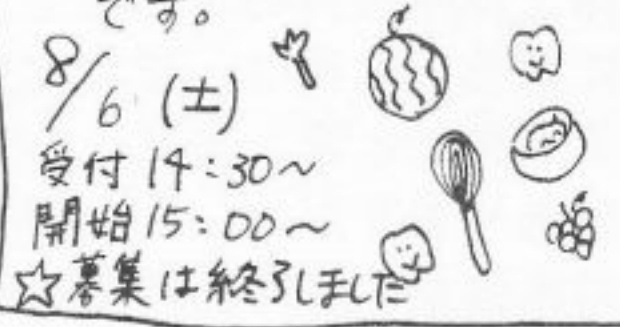 です。
8/6 (土)
受付 14:30～
開始 15:00～
☆募集は終了しました